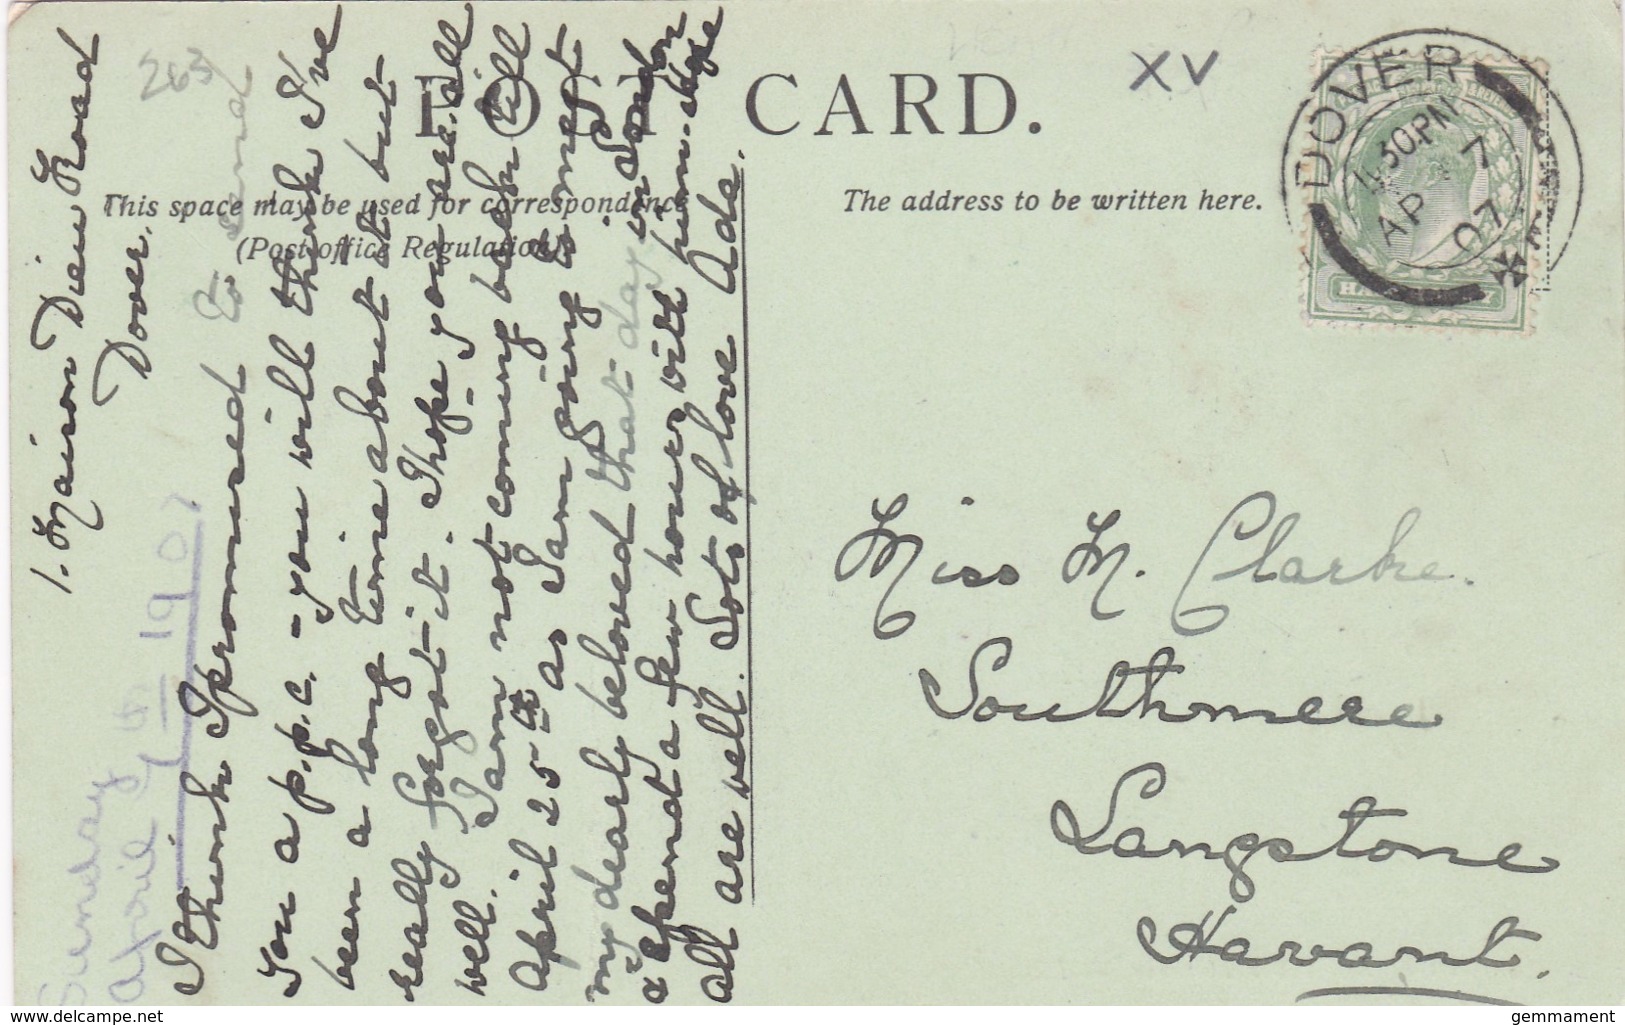 263
POST CARD.
XV
This space may be used for correspondence
(Post office Regulation)
The address to be written here.
DOVER
11.30PM
AP 7
07
HALFPENNY
1. Maison Dieu Road
Dover.
Sunday
April 7th 1907
I think I promised to send
You a p.p.c. - you will think I've
been a long time about it but
really forgot it. I hope you are all
well. I am not coming back till
April 25th as I am going to meet
my dearly beloved that day in London
& spend a few hours with him. Hope
all are well. Lots of love Ada.
Miss M. Clarke.
Southmere
Langstone
Havant.
www.delcampe.net
gemmament